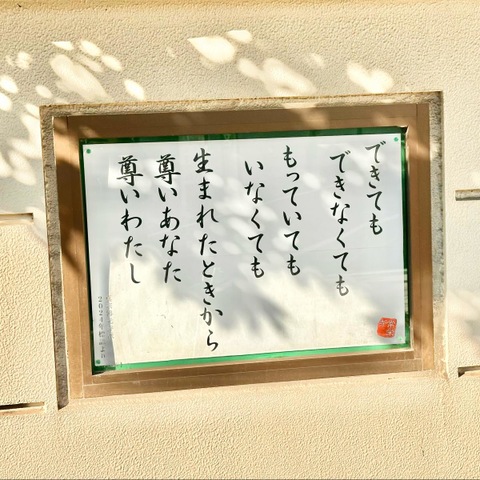 できても
できなくても
もっていても
いなくても
生まれたときから
尊いあなた
尊いわたし